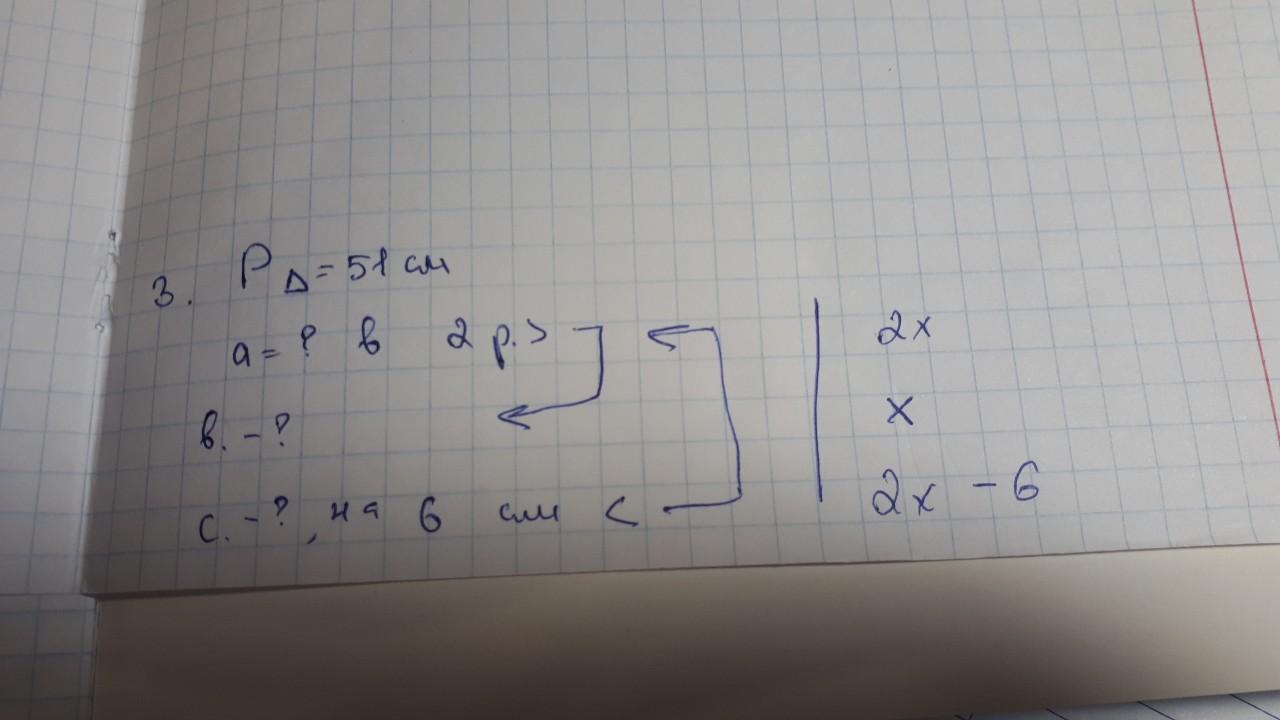 3. P△ = 51 см
a = ? в 2 р. >
в. - ?
с. - ?, на 6 см <
2x
x
2x - 6